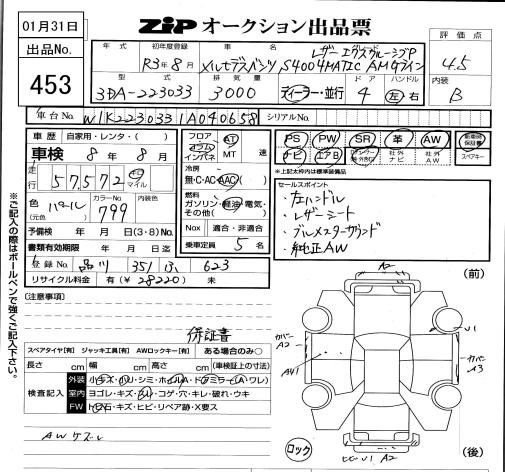 01月31日
出品No.
453
ZiP オークション出品票
年式
初年度登録
R3年8月
車名
レザーエクスクルーシブP
メルセデスベンツ S400 4MATIC AMGライン
評価点
4.5
内装
B
型式
3DA-223033
排気量
3000
ディーラー・並行
ドア
4
ハンドル
左 右
車台No.
W1K2230331A040658
シリアルNo.
車歴 自家用・レンタ・( )
車検 8年 8月
走行
57,572
マイル
色
(元色)
パール
カラーNo.
799
内装色
予備検 年 月 日(3・8)No.
書類有効期限 年 月 日迄
登録No. 品川 351 ふ 623
リサイクル料金 有(¥28220) 未
フロア
インパネ
AT
MT
速
冷房
無・C・AC・AAC
燃料
ガソリン・軽油・電気・
その他( )
Nox 適合・非適合
乗車定員 5名
PS PW SR 革 AW
ナビ エアB
社外
ナビ
社外
AW
保証書
スペアキー
*上記太枠内は標準装備品
セールスポイント
・左ハンドル
・レザーシート
・ブルメスターサウンド
・純正AW
※ご記入の際はボールペンで強くご記入下さい。
[注意事項]
併証書
スペアタイヤ[有] ジャッキ工具[有] AWロックキー[有] ある場合のみ○
長さ cm 幅 cm 高さ cm (車検証上の寸法)
検査記入
外装
室内 ヨゴレ・キズ・スレ・コゲ・穴・キレ・破れ・ウキ
FW 飛石・キズ・ヒビ・リペア跡・X要ス
AWケズレ
(前)
A2
U1
カバー
A2
AU1
カバー
A3
ロック
U1 A2
(後)